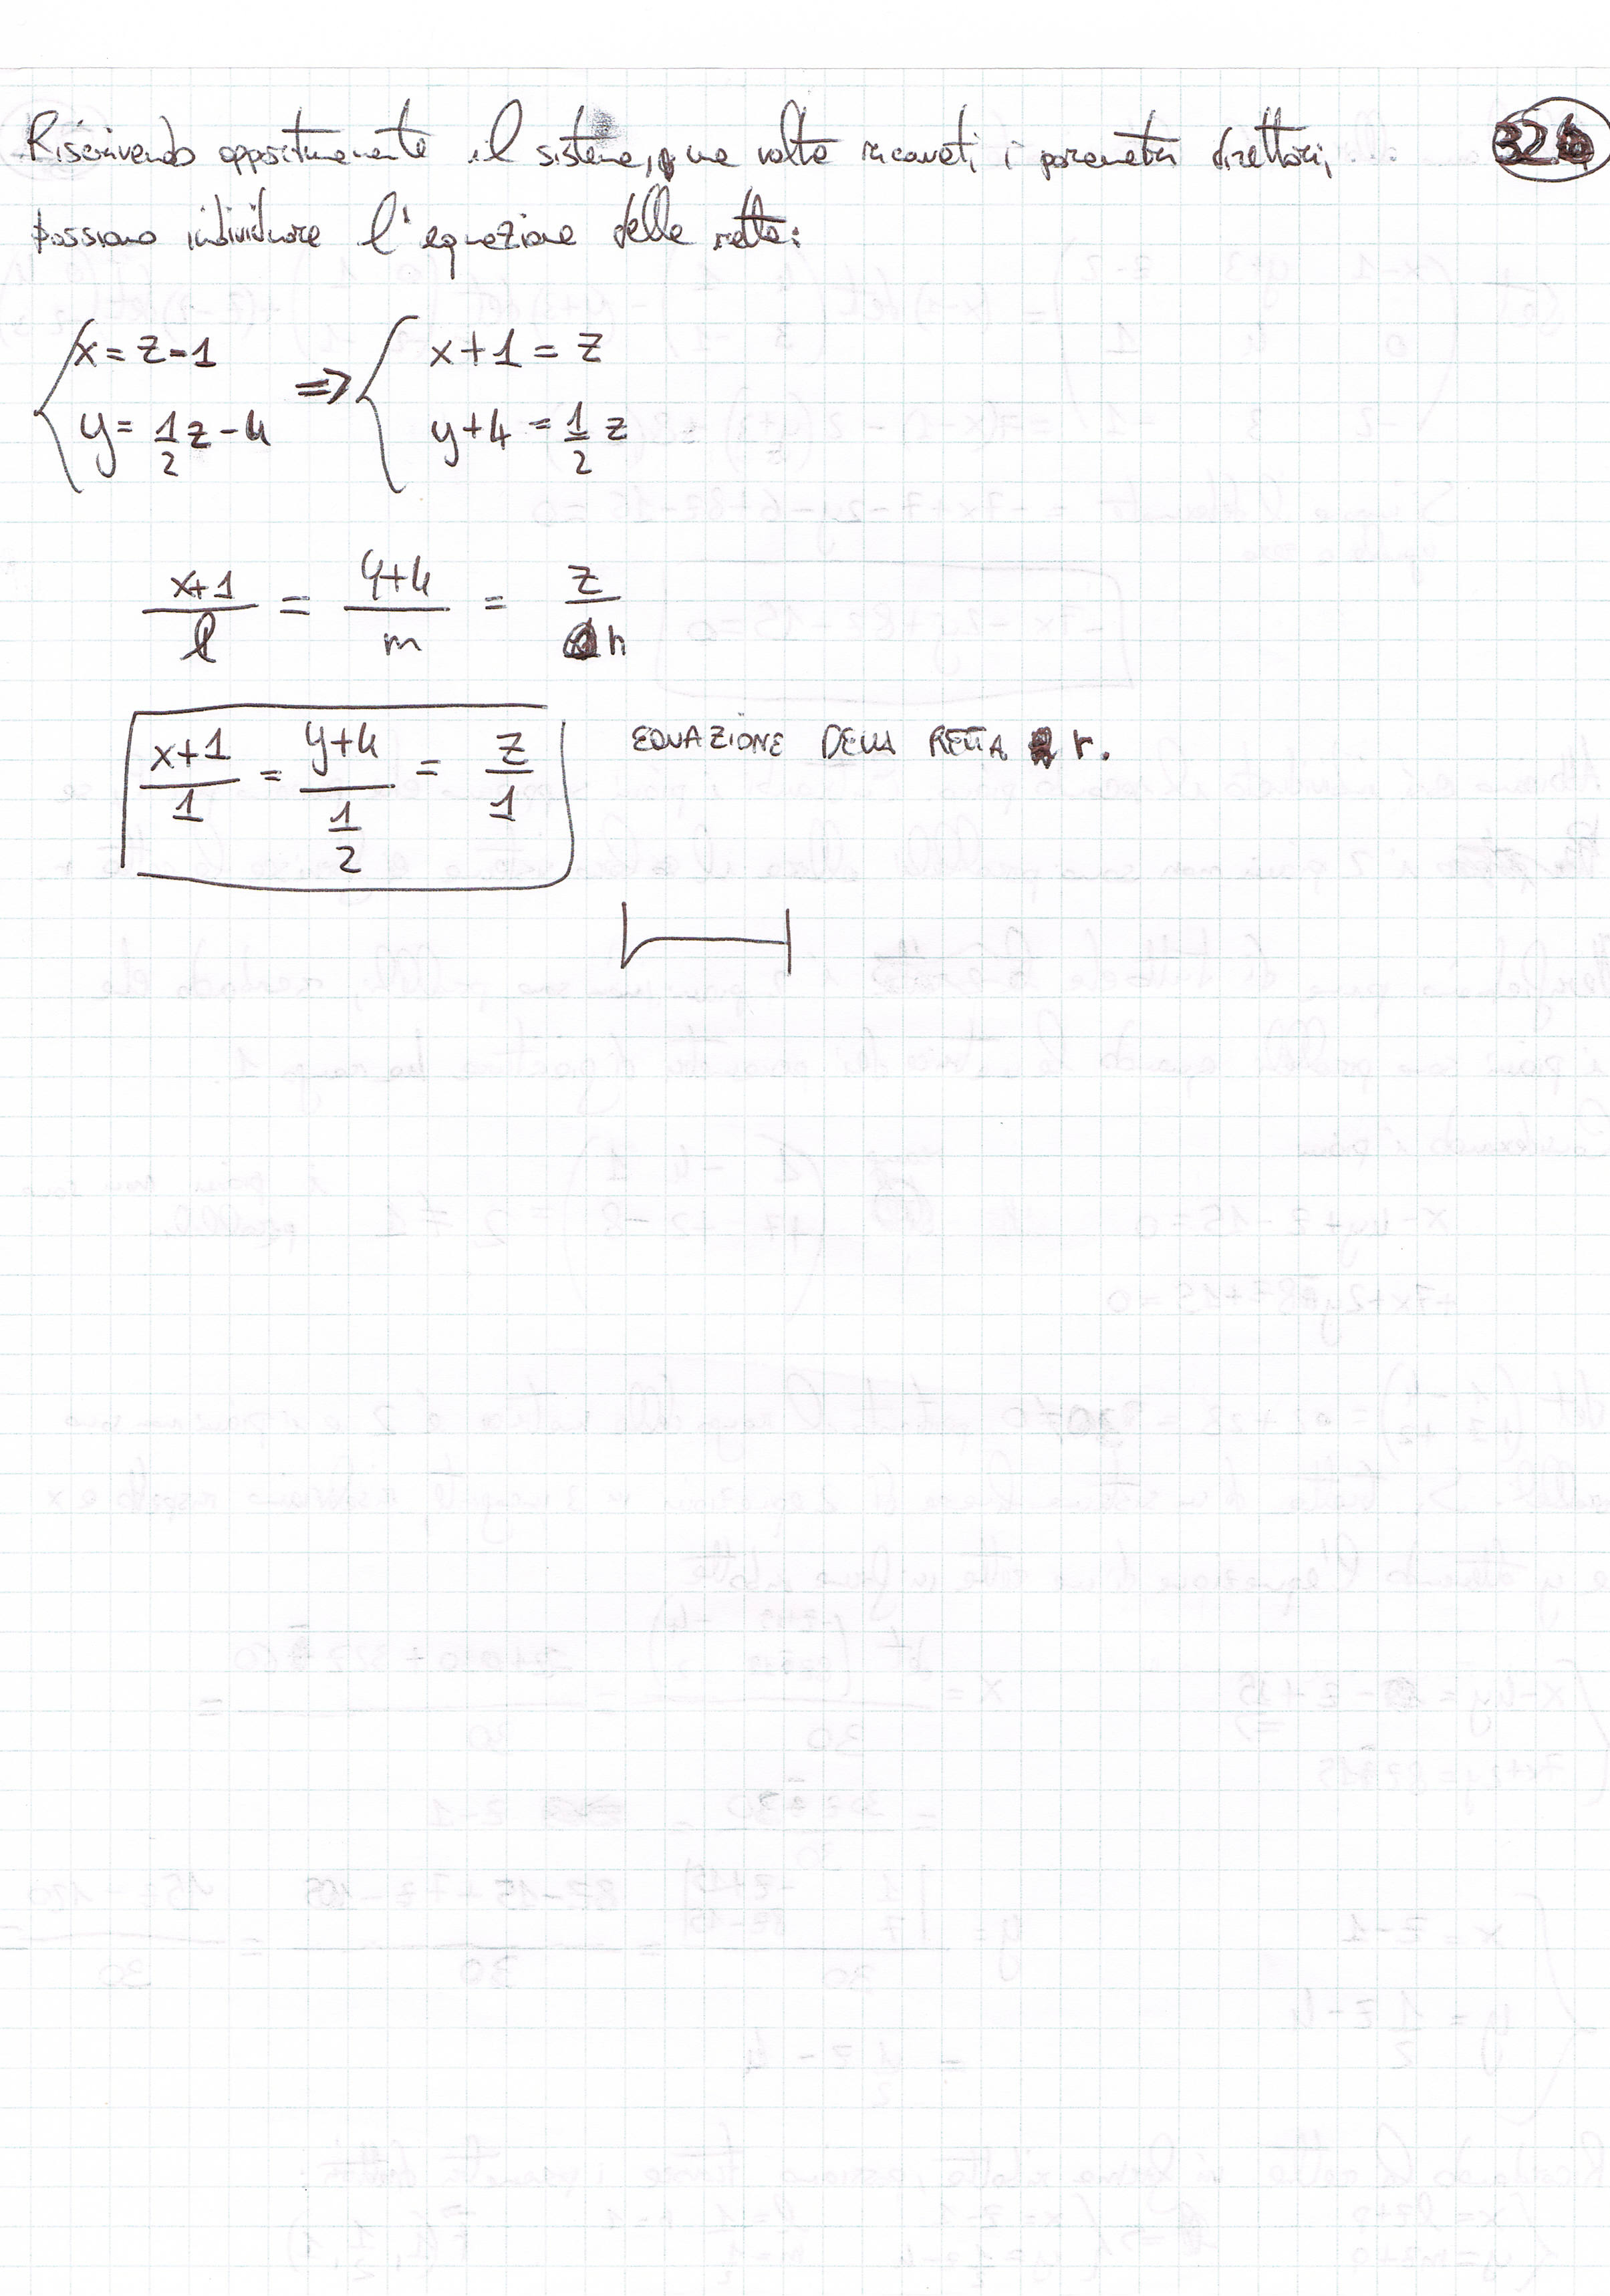 Riscrivendo opportunamente il sistema, una volta ricavati i parametri direttori, 326
possiamo individuare l'equazione della retta:
{ x = z - 1 => { x + 1 = z
y = 1/2 z - 4 y + 4 = 1/2 z
(x+1)/l = (y+4)/m = z/n
(x+1)/1 = (y+4)/(1/2) = z/1 EQUAZIONE DELLA RETTA r.